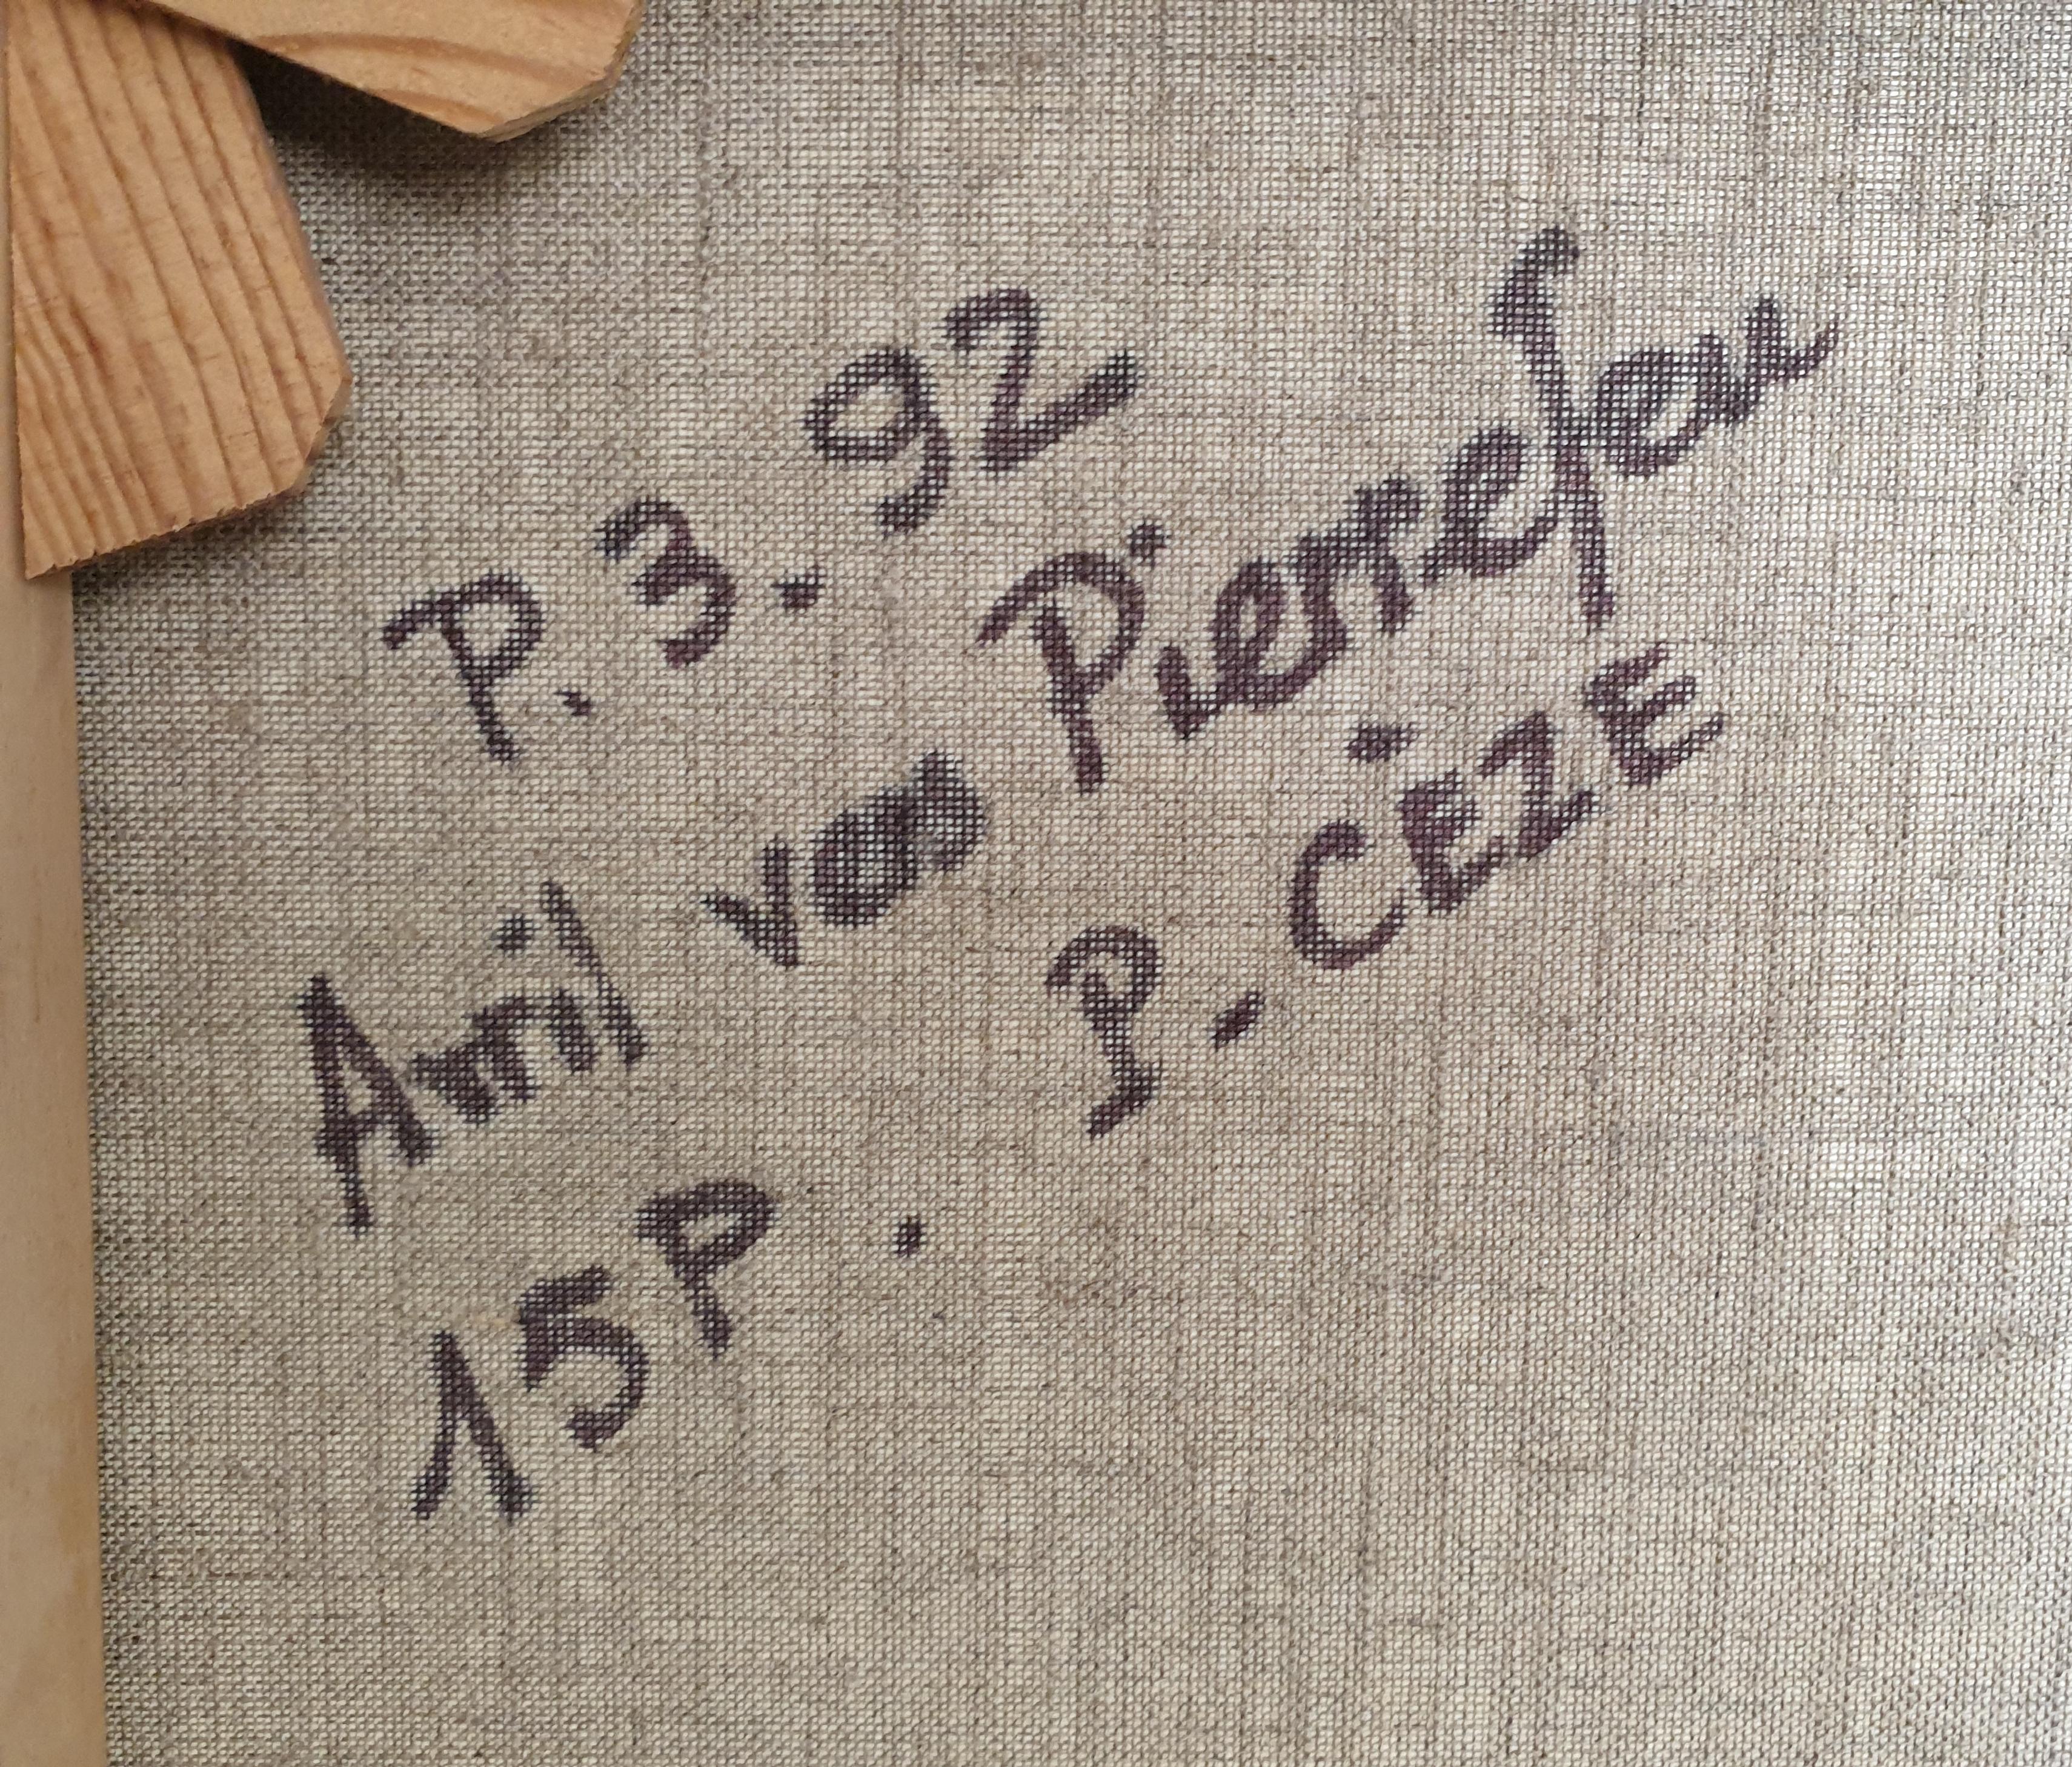 P. 3. 92
Avril vers Pierrefeu
15P. P. CÉZE